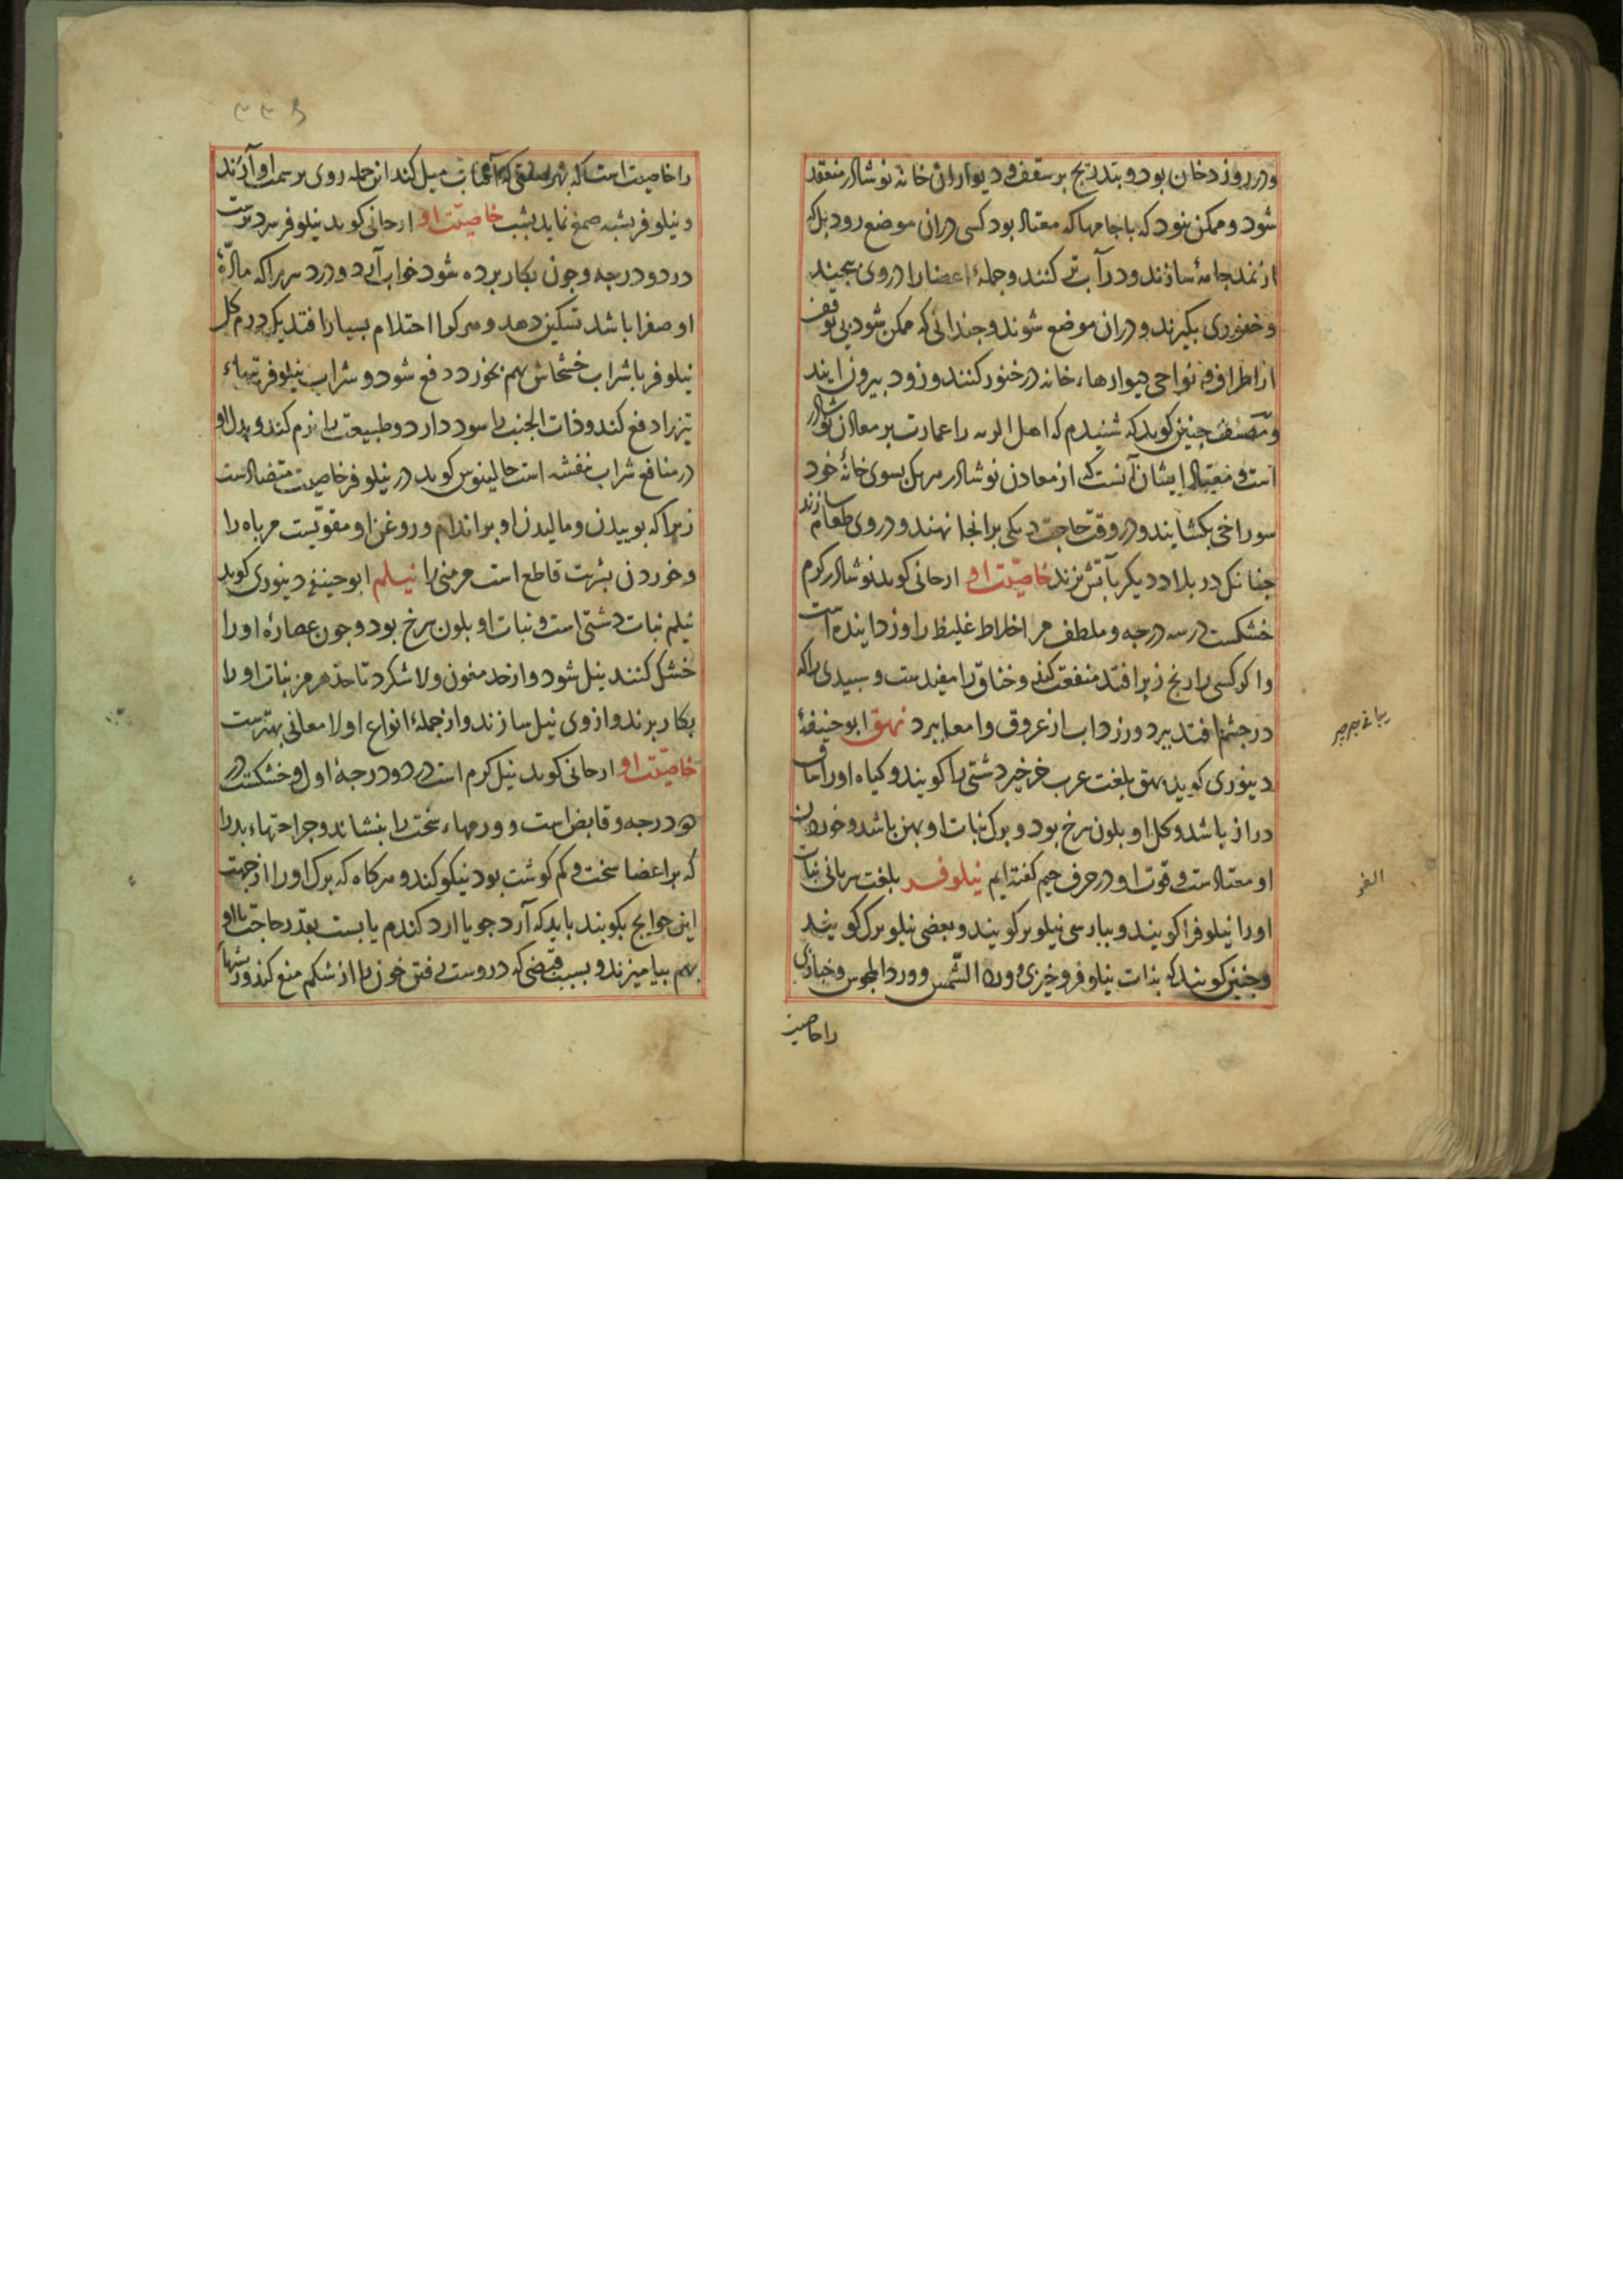 و در روز دخان بود و بتدریج بر سقف و دیواران خانه نوشادر منعقد
شود و ممکن نبود که با جامها که معتاد بود کسی در آن موضع رود بل که
از نمد جامهٔ سازند و در آب تر کنند و جملهٔ اعضا را در وی بیجیند
و خنوری بکیرند و در آن موضع شوند و جندانی که ممکن شود بی توقف
از اطراف و نواحی دیوارهاء خانه در خنور کنند و زود بیرون ایند
و مصنف جنین کوید که شنیدم که اهل را عمارت بر معادن نوشادر
است و معتاد ایشان آنست که از معادن نوشادر هر یک بسوی خانهٔ خود
سوراخی بکشایند و در وقت حاجت دیکی بر انجا نهند و در وی طعام سازند
جنانک در بلاد دیکر بآتش بزند خاصیّت او ارجانی کوید نوشادر کرم
خشکست در سه درجه و ملطف مر اخلاط غلیظ را و زداینده است
و اکر کسی را رنج زیر افتد منفعت کند و خناق را مفیدست و سبیدی را که
در جشم افتد ببرد و زرداب از عروق و امعا ببرد نهق ابو حنیفهٔ
دینوری کوید نهق بلغت عرب خرخیز دشتی را کویند و کیاه او را ساق
دراز باشد و کل او بلون سرخ بود و برک نبات او بهن باشد و خوردن
او معتادست و قوت او در حرف جیم کفته ایم نیلوفر بلغت سریانی نبات
او را نیلوفرا کویند و ببارسی نیلوبر کویند و بعضی نیلوبرک کویند
و جنین کویند که بذات نیلوفر و خیری و ورد الشّمس و ورد المجوس و خبازی
را خاصیت
ریباغی جرجیر
را خاصیت است که بهر سمتی که آفتاب میل کند این جمله روی بر سمت او آرند
و نیلوفر بشبه صمغ نماید بشب خاصیّت او ارجانی کوید نیلوفر سرد ترست
در دو درجه و جون بکار برده شود خواب آرد و درد سر را که مادّهٔ
او صفرا باشد تسکین دهد و هر کرا احتلام بسیار افتد یک درم کل
نیلوفر با شراب خشخاش بهم بخورد دفع شود و شراب نیلوفر تبهاء
تیز را دفع کند و ذات الجنب را سود دارد و طبیعت را نرم کند و بدل او
در منافع شراب بنفشه است جالینوس کوید در نیلوفر خاصیت متضادست
زیرا که بوییدن و مالیدن او بر اندام و روغن او مقوّیست مر باه را
و خوردن بشربت قاطع است مر منی را نیلم ابو حنیفه دینوری کوید
نیلم نبات دشتی است و نبات او بلون سرخ بود و جون عصارهٔ او را
خشک کنند نیل شود و از حد و لاشکرد تا حد هرمز نبات او را
بکار برند و از وی نیل سازند و از جملهٔ انواع او لامغانی بهترست
خاصیّت او ارجانی کوید نیل کرم است در دو درجهٔ اول و خشکست در
دو درجه و قابض است و ورمهاء سخت را بنشاند و جراحتهاء بد را
که بر اعضا سخت و کم کوشت بود نیکو کند و هرکاه که برک او را از جهت
این حوایج بکوبند باید که آرد جو یا ارد کندم یا بست بقدر حاجت با او
بهم بیامیزند و بسبب قبضی که در وست رفتن خون را از شکم منع کند و ریشها